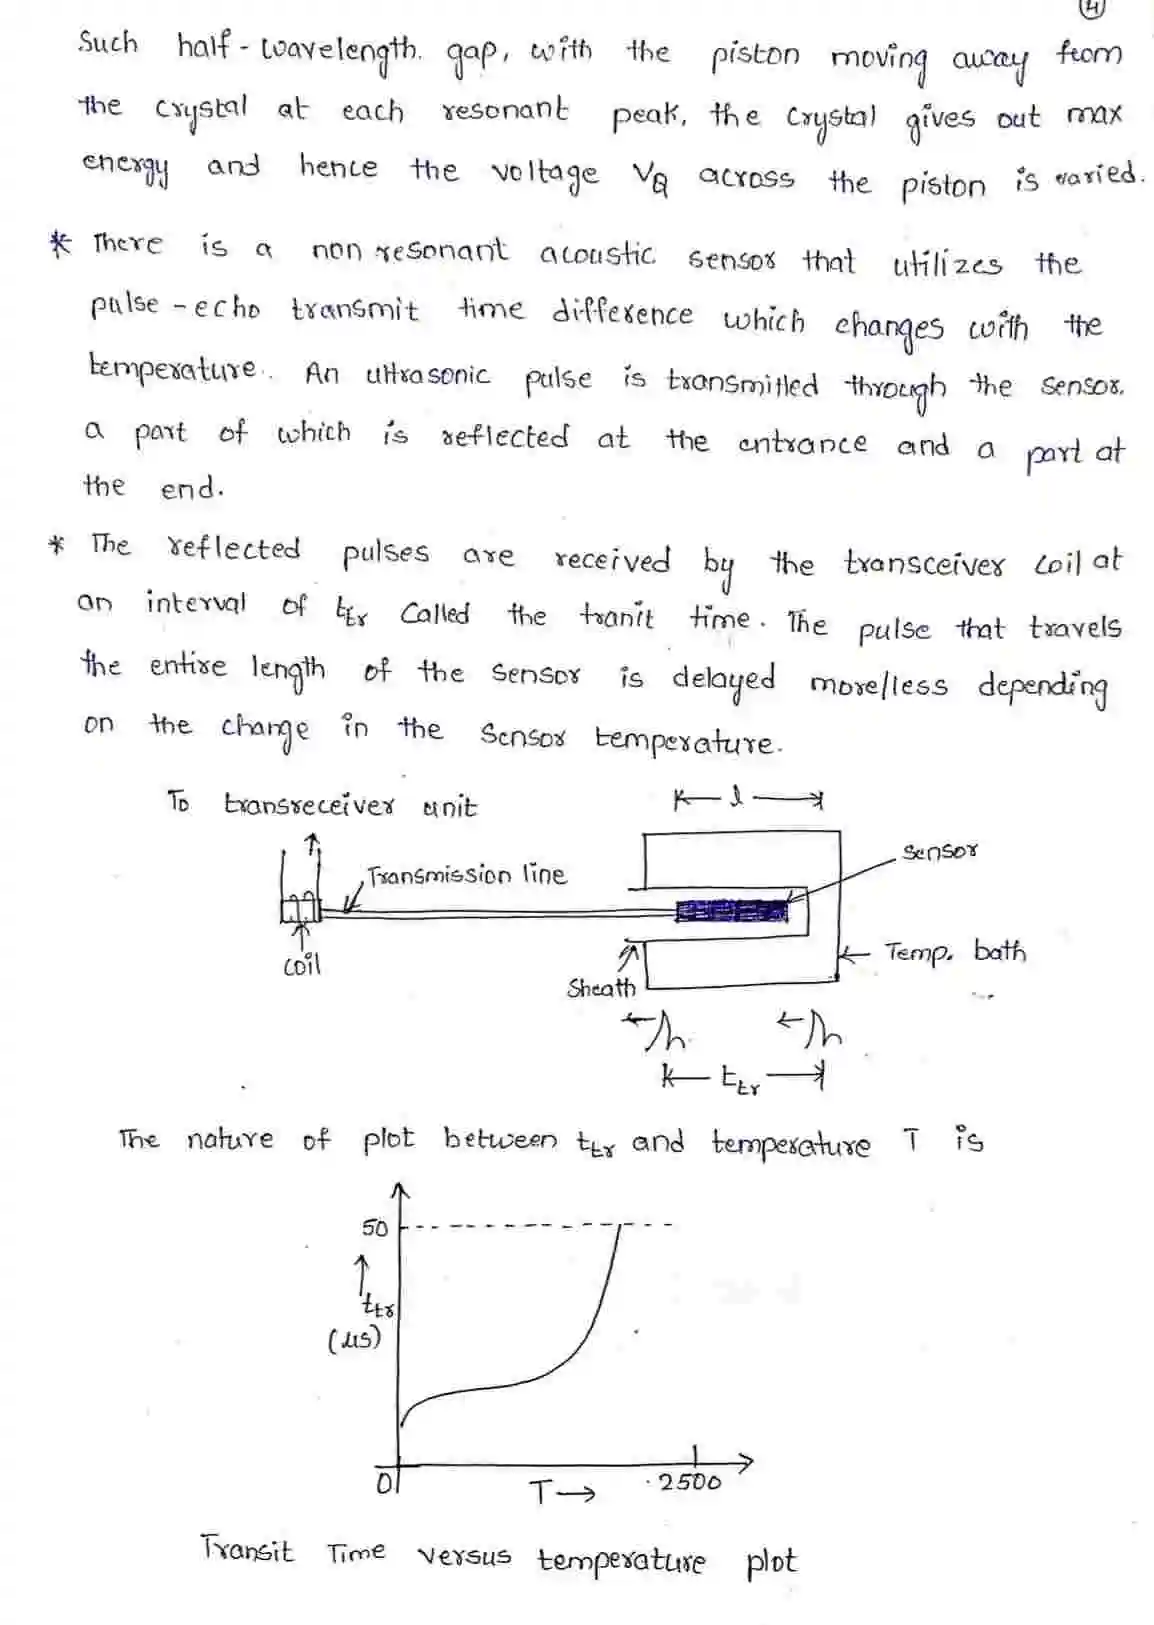 4
Such half-wavelength. gap, with the piston moving away from
the crystal at each resonant peak, the crystal gives out max
energy and hence the voltage VQ across the piston is varied.
* There is a non resonant acoustic sensor that utilizes the
pulse-echo transmit time difference which changes with the
temperature. An ultrasonic pulse is transmitted through the sensor.
a part of which is reflected at the entrance and a part at
the end.
* The reflected pulses are received by the transceiver coil at
an interval of ttr Called the tranit time. The pulse that travels
the entire length of the sensor is delayed more/less depending
on the change in the sensor temperature.
To transreceiver unit
l
Sensor
Transmission line
coil
Temp. bath
Sheath
ttr
The nature of plot between ttr and temperature T is
50
ttr
(μs)
0
T→
2500
Transit Time versus temperature plot